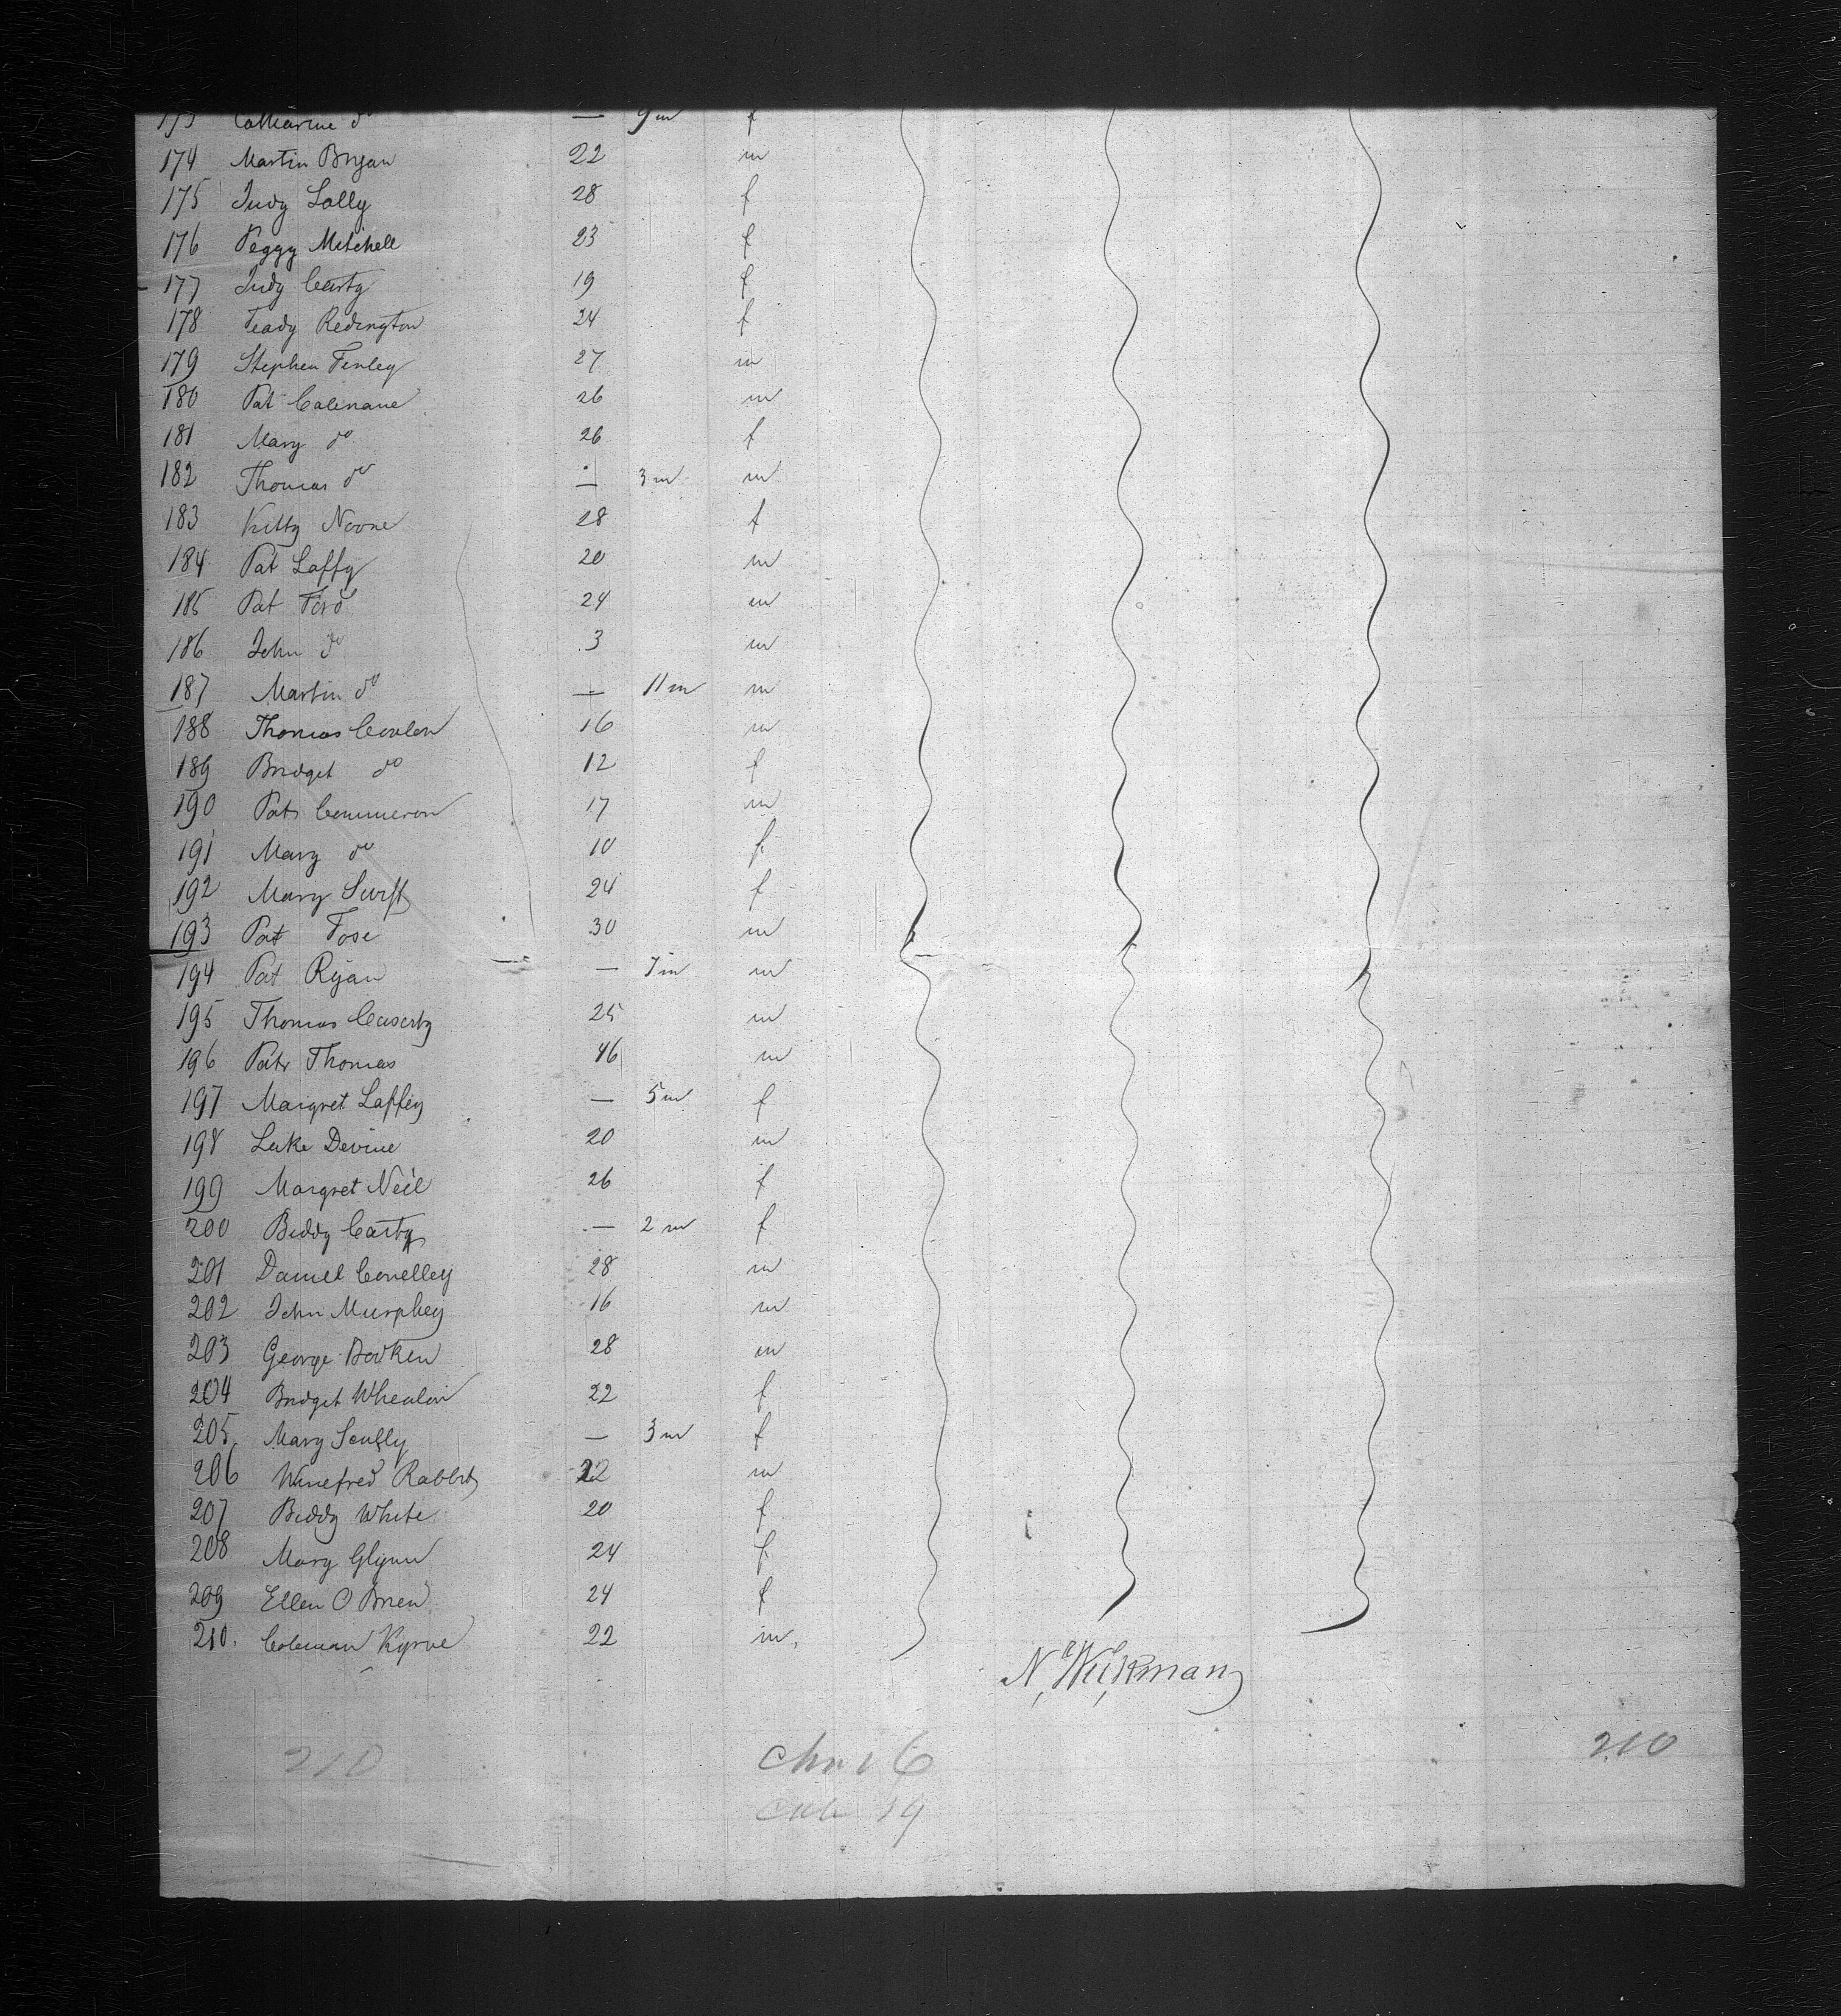 173 Catharine do — 9m f
174 Martin Bryan 22 m
175 Judy Lally 28 f
176 Peggy Mitchell 23 f
177 Judy Carty 19 f
178 Teady Redington 24 f
179 Stephen Finley 27 m
180 Pat Calinane 26 m
181 Mary do 26 f
182 Thomas do — 3m m
183 Kitty Noone 28 f
184 Pat Laffy 20 m
185 Pat Ford 24 m
186 John do 3 m
187 Martin do — 11m m
188 Thomas Conlon 16 m
189 Bridget do 12 f
190 Patr Commeron 17 m
191 Mary do 10 f
192 Mary Swift 24 f
193 Pat Fose 30 m
194 Pat Ryan — 7m m
195 Thomas Caserty 25 m
196 Patr Thomas 46 m
197 Margret Laffey — 5m f
198 Luke Devine 20 m
199 Margret Neil 26 f
200 Biddy Carty — 2m f
201 Daniel Conelley 28 m
202 John Murphey 16 m
203 George Borken 28 m
204 Bridget Whealon 22 f
205 Mary Scully — 3m f
206 Winefred Rabbit 22 m
207 Biddy White 20 f
208 Mary Glynn 24 f
209 Ellen O Brien 24 f
210. Coleman Kyrve 22 m.
N. Wickman
210 Chn 16 210
19